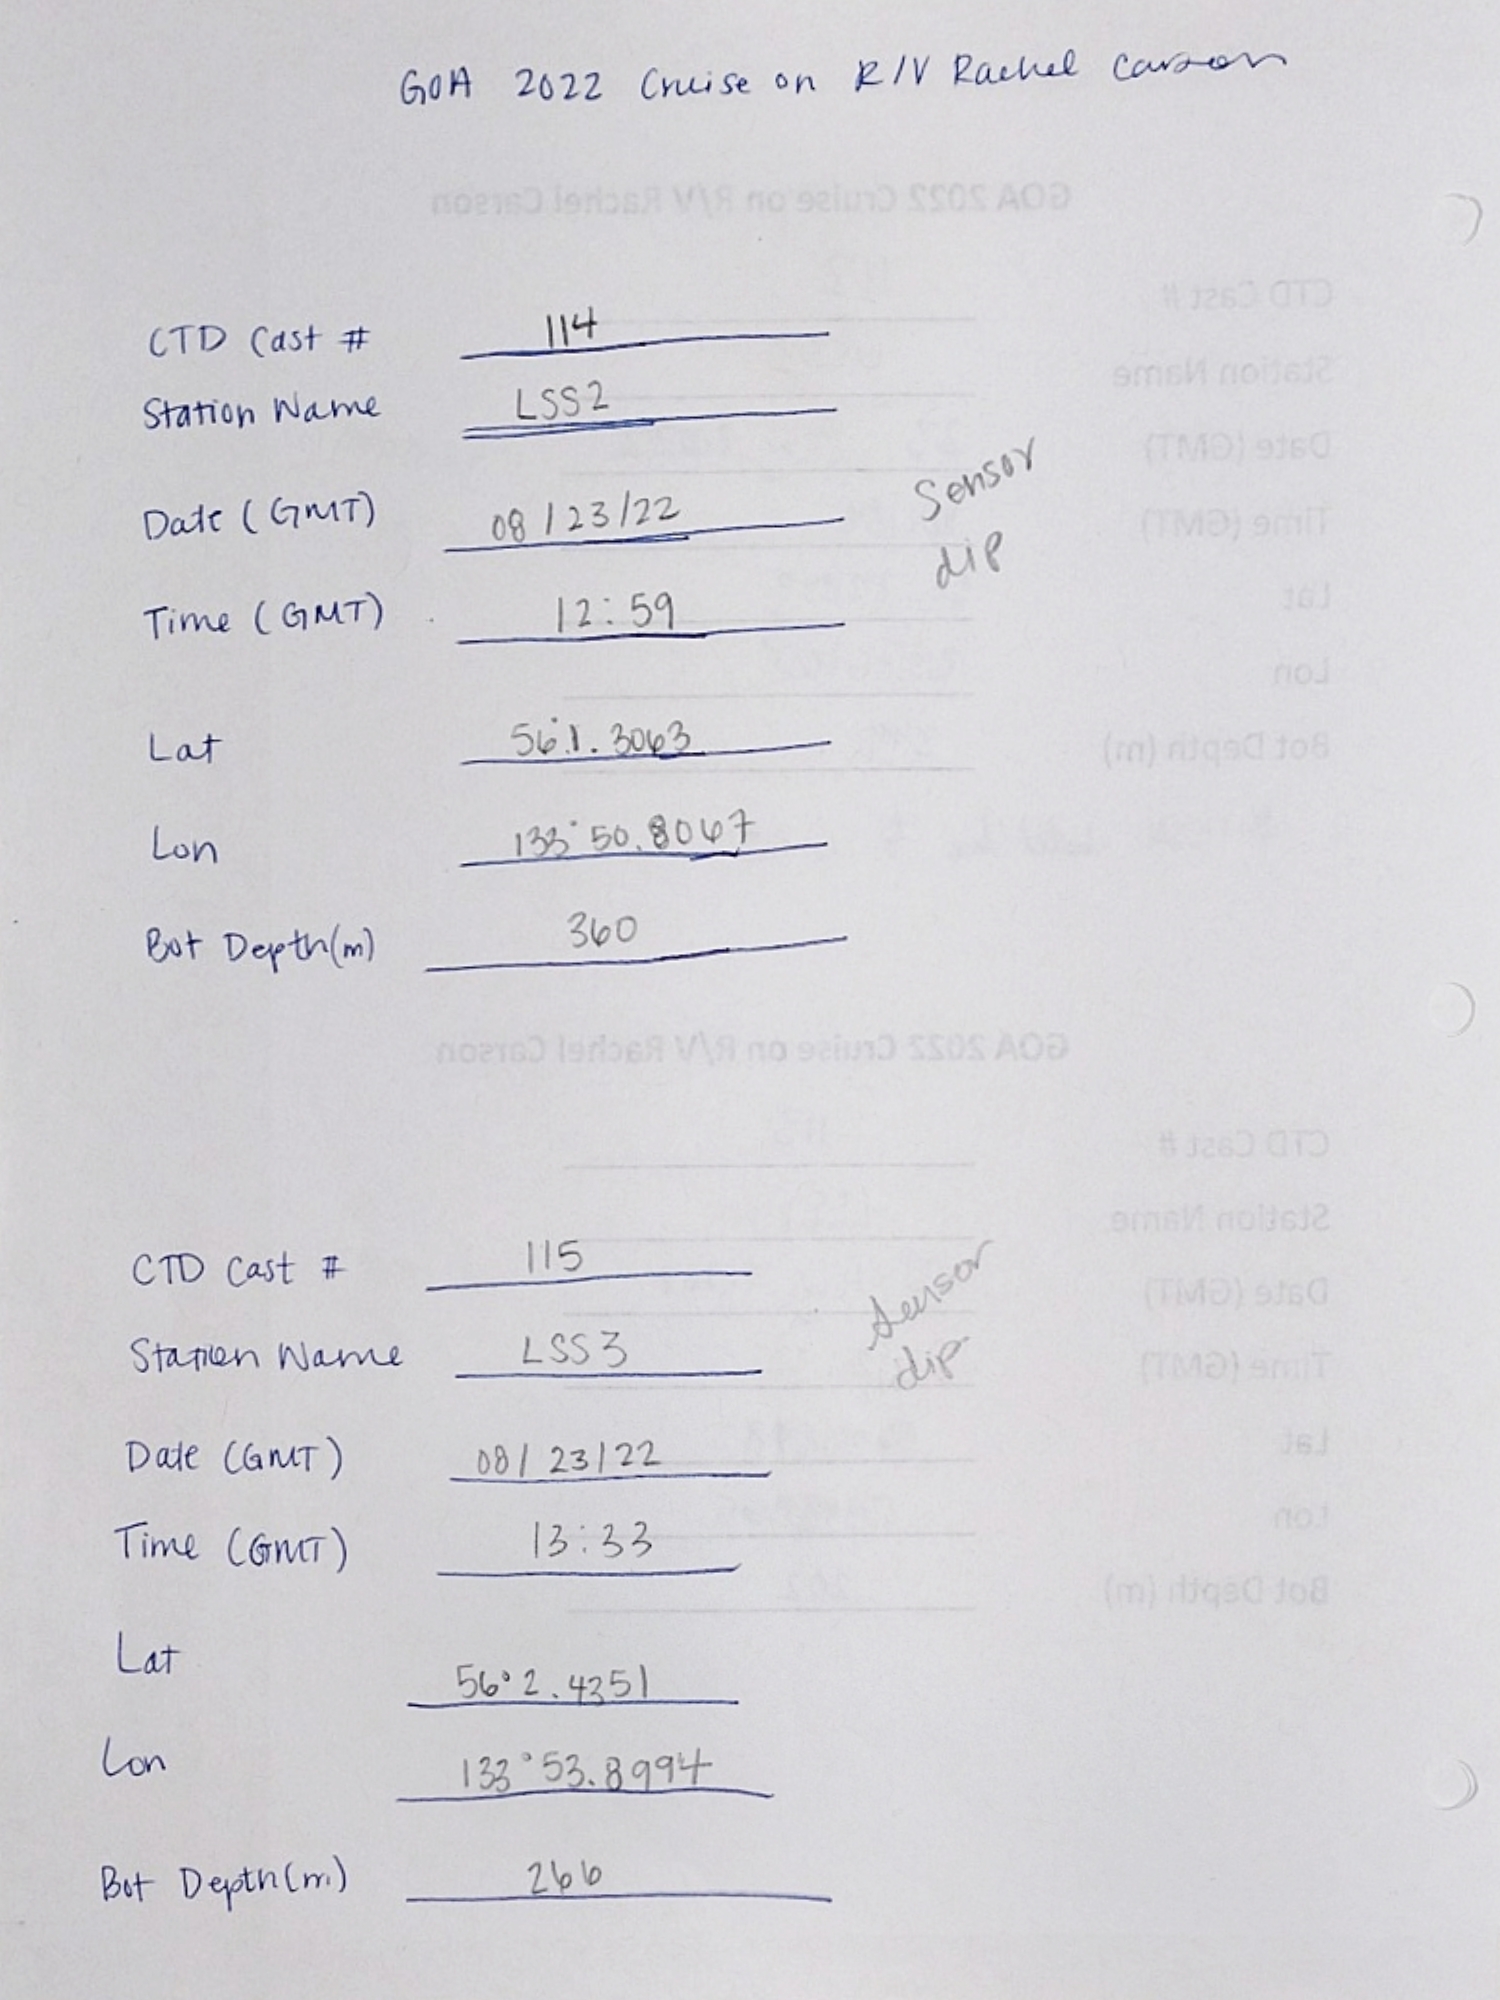 GOA 2022 Cruise on R/V Rachel Carson
CTD Cast # 114
Station Name LSS2
Date (GMT) 08/23/22
Sensor
dip
Time (GMT) 12:59
Lat 56°1.3063
Lon 133°50.8067
Bot Depth(m) 360
CTD Cast # 115
Station Name LSS3
Sensor
dip
Date (GMT) 08/23/22
Time (GMT) 13:33
Lat 56°2.4351
Lon 133°53.8994
Bot Depth(m) 266